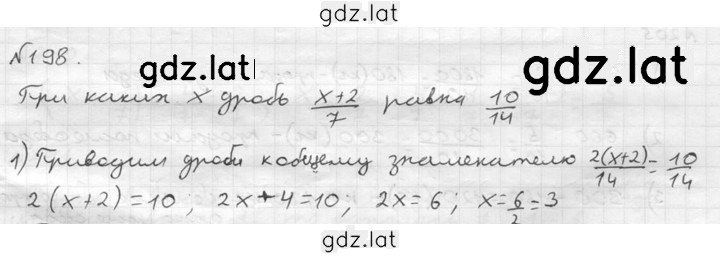 gdz.lat
№198.
gdz.lat
gdz.lat
При каких x дробь (x+2)/7 равна 10/14
1) Приводим дроби к общему знаменателю 2(x+2)/14 = 10/14
2(x+2)=10; 2x+4=10; 2x=6; x=6/2=3
gdz.lat